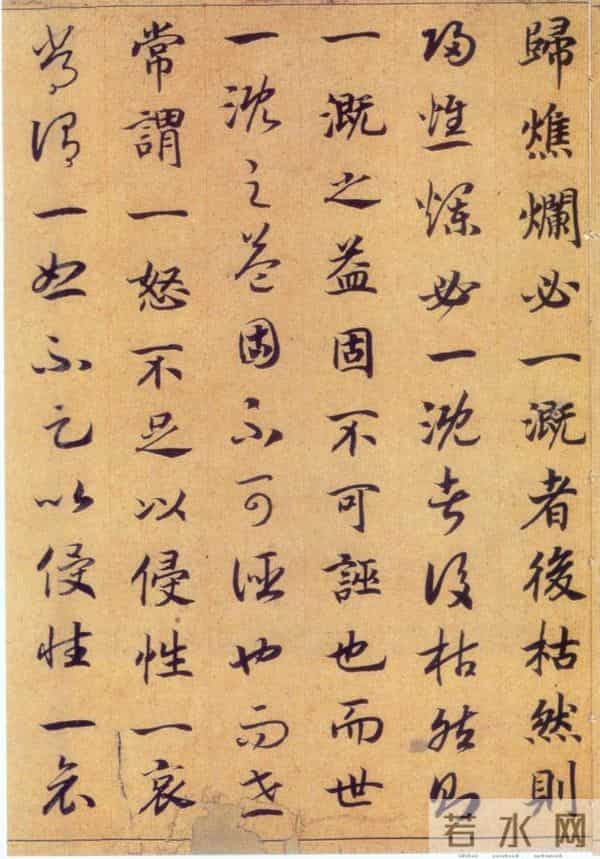 歸燋爛必一溉者後枯然則
歸燋爛必一溉者後枯然則
一溉之益固不可誣也而世
一溉之益固不可誣也而世
常謂一怒不足以侵性一哀
常謂一怒不足以侵性一哀
若水网